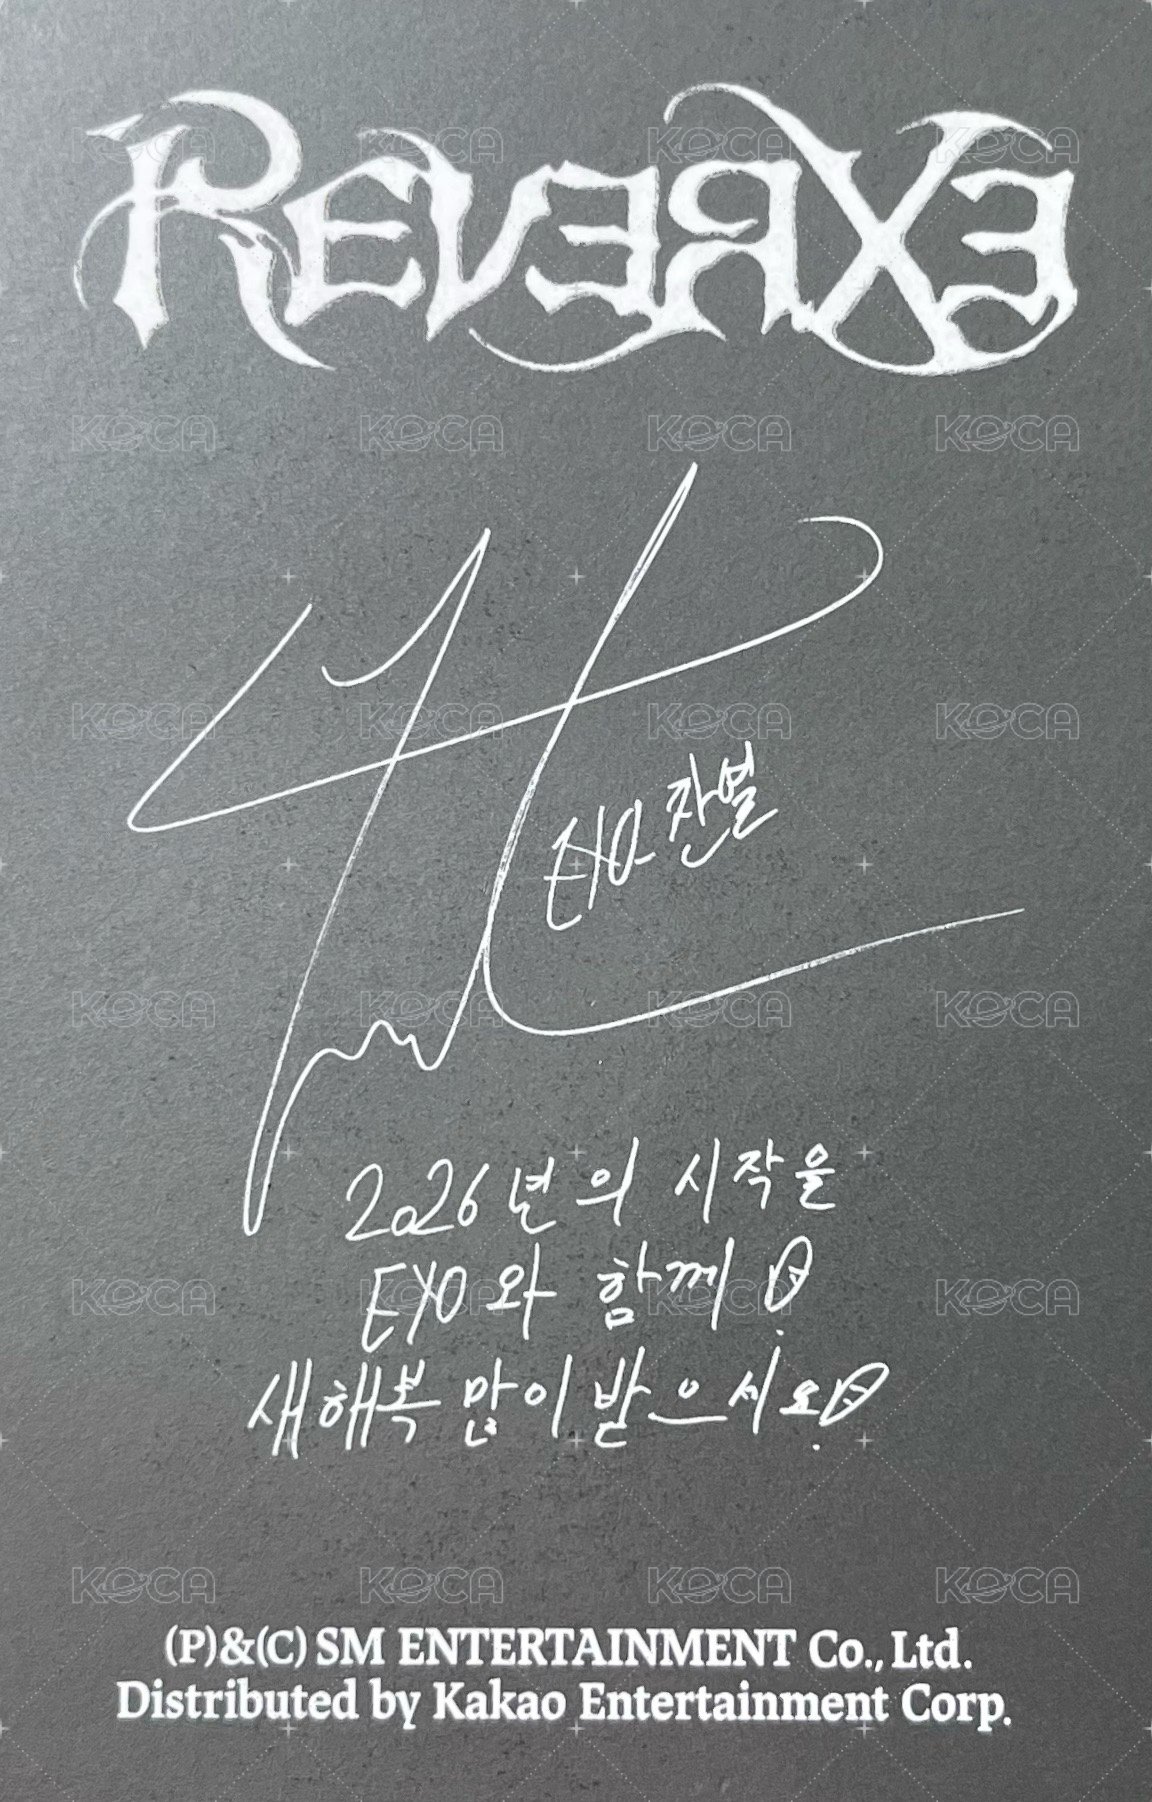 REVERXE
EXO 찬열
2026년의 시작을
EXO와 함께!
새해복 많이 받으세요!
(P)&(C) SM ENTERTAINMENT Co., Ltd.
Distributed by Kakao Entertainment Corp.
KOCA